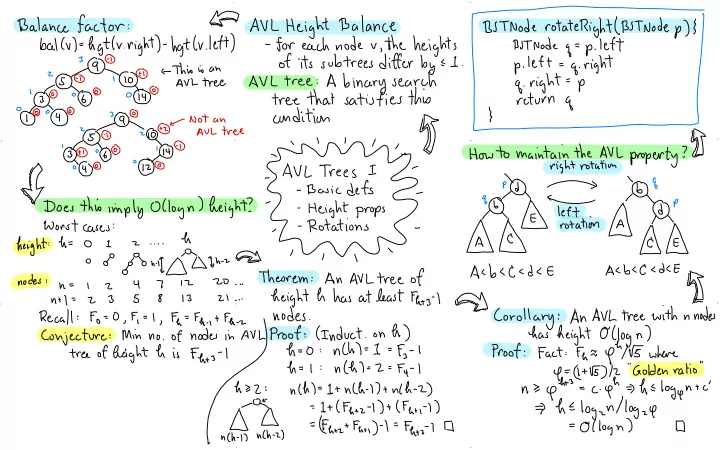 Balance factor:
bal(v) = hgt(v.right) - hgt(v.left)
← This is an
AVL tree
Not an
AVL tree
AVL Height Balance
- for each node v, the heights
of its subtrees differ by ≤ 1.
AVL tree: A binary search
tree that satisfies this
condition
BSTNode rotateRight(BSTNode p){
BSTNode q = p.left
p.left = q.right
q.right = p
return q
}
AVL Trees I
- Basic defs
- Height props
- Rotations
How to maintain the AVL property?
right rotation
left
rotation
A<b<C<d<E
A<b<C<d<E
Does this imply O(log n) height?
Worst cases:
height: h = 0 1 2 .... h
h-1 h-2
nodes: n = 1 2 4 7 12 20 ...
n+1 = 2 3 5 8 13 21 ...
Recall: F₀ = 0, F₁ = 1, Fₕ = Fₕ₋₁ + Fₕ₋₂
Conjecture: Min no. of nodes in AVL
tree of height h is Fₕ₊₃ - 1
Theorem: An AVL tree of
height h has at least Fₕ₊₃ - 1
nodes.
Proof: (Induct. on h)
h=0: n(h) = 1 = F₃ - 1
h=1: n(h) = 2 = F₄ - 1
h ≥ 2: n(h) = 1 + n(h-1) + n(h-2)
= 1 + (Fₕ₊₂ - 1) + (Fₕ₊₁ - 1)
= (Fₕ₊₂ + Fₕ₊₁) - 1 = Fₕ₊₃ - 1 □
n(h-1) n(h-2)
Corollary: An AVL tree with n nodes
has height O(log n)
Proof: Fact: Fₕ ≈ φʰ/√5 where
φ = (1+√5)/2 "Golden ratio"
n ≥ φʰ⁺³ = c·φʰ ⇒ h ≤ log_φ n + c'
⇒ h ≤ log₂ n / log₂ φ
= O(log n) □